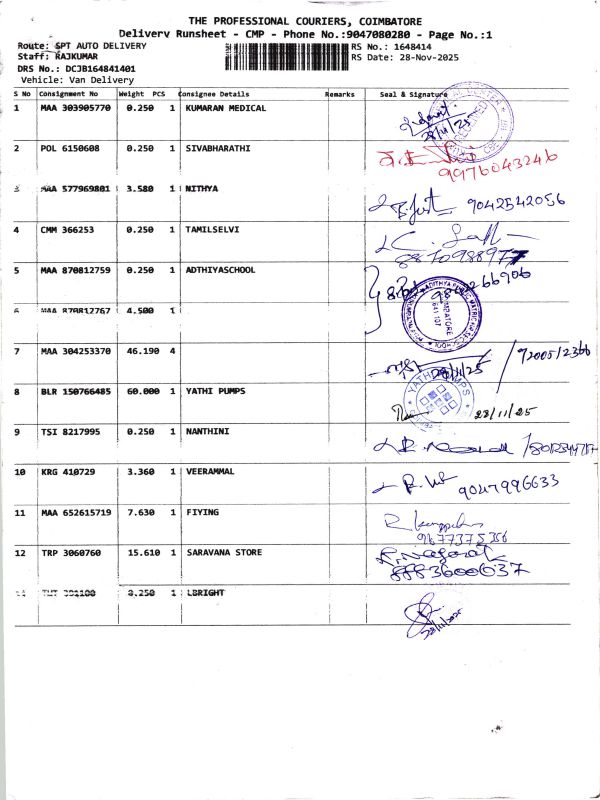 THE PROFESSIONAL COURIERS, COIMBATORE
Delivery Runsheet - CMP - Phone No.:9047080280 - Page No.:1
Route: SPT AUTO DELIVERY RS No.: 1648414
Staff: RAJKUMAR RS Date: 28-Nov-2025
DRS No.: DCJB164841401
Vehicle: Van Delivery
S No Consignment No Weight PCS Consignee Details Remarks Seal & Signature
1 MAA 303905770 0.250 1 KUMARAN MEDICAL
28/11/25
2 POL 6150608 0.250 1 SIVABHARATHI
9976043246
3 MAA 577969801 3.580 1 NITHYA 9042542056
4 CMM 366253 0.250 1 TAMILSELVI
5 MAA 870812759 0.250 1 ADTHIYASCHOOL
6 MAA 870812767 4.500 1
7 MAA 304253370 46.190 4
28/11/25
8 BLR 150766485 60.000 1 YATHI PUMPS
28/11/25
9 TSI 8217995 0.250 1 NANTHINI
10 KRG 410729 3.360 1 VEERAMMAL
9047996633
11 MAA 652615719 7.630 1 FIYING
9677375356
12 TRP 3060760 15.610 1 SARAVANA STORE
8883600637
0.250 1 LBRIGHT